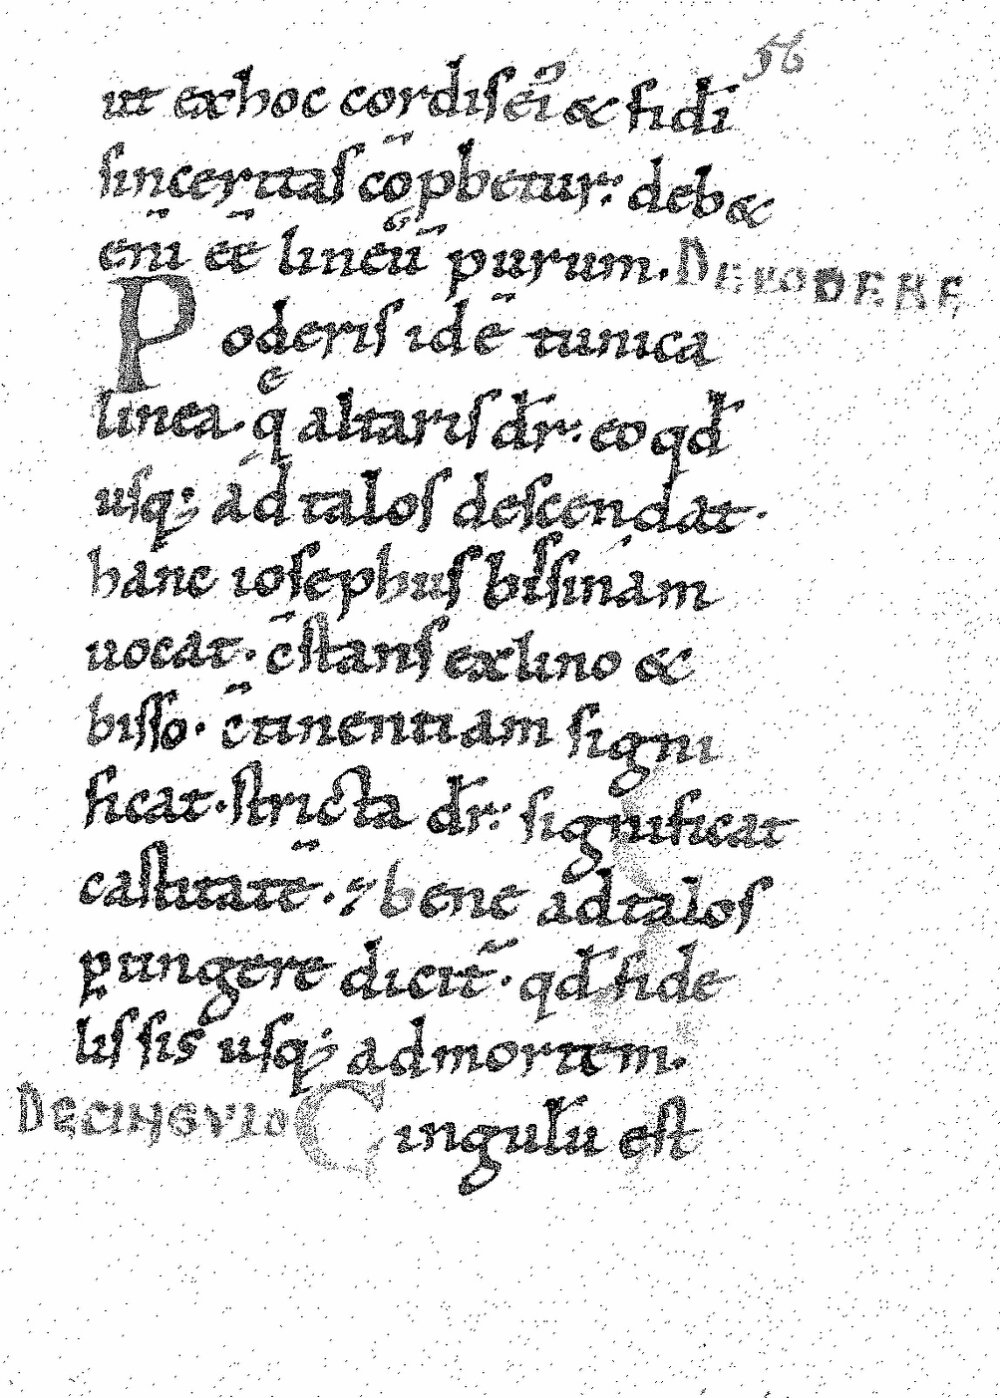 56
ut exhoc cordiſ ei᷒ & fidı̄
ſinceritaſ cōpbetur: deb&
eni̅ ee̅ lineu̅ purum. DE PODERE
Poderiſ ide̅ tunica
linea. qͤ altariſ dr̄: eo qd̄
uſq; ad taloſ deſcendat.
hanc ioſephuſ biſſinam
uocat. c̅ſtanſ exlino &
biſſo. c̅tinentiam ſigni
ficat. ſtricta dr̄: ſignificat
caſtitate̅. bene adtaloſ
ptingere dicit᷑. qd̄ fide
liſ ſis uſq; admortem.
DE CINGVLO Cingulu̅ eſt